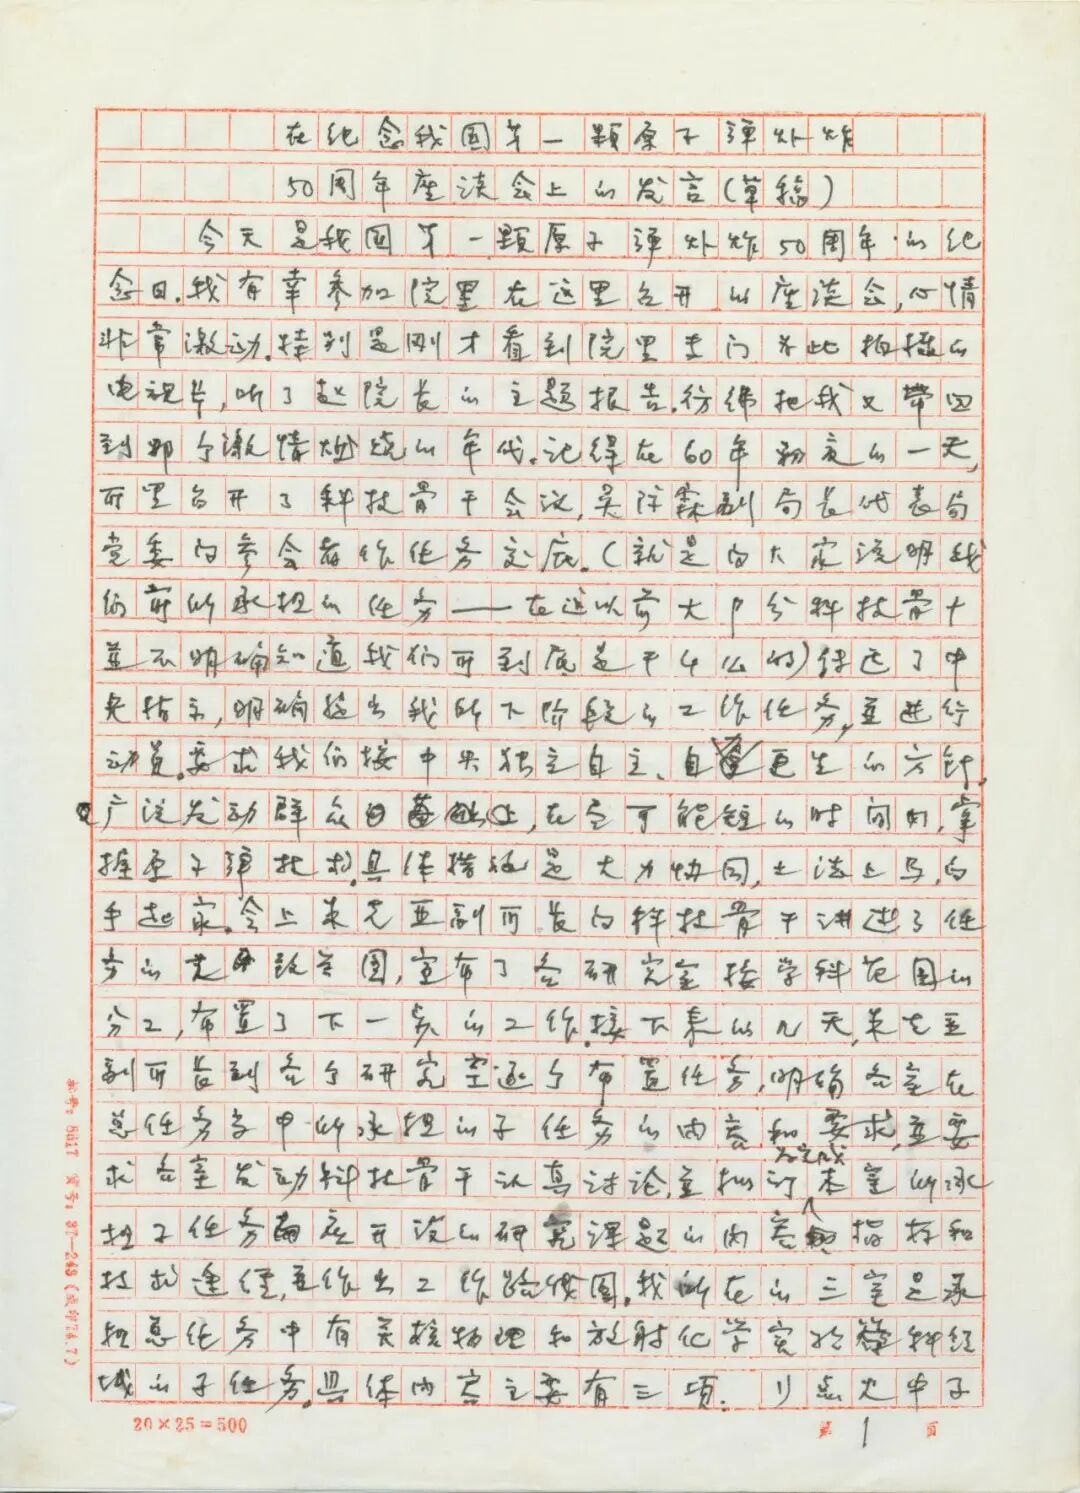 在纪念我国第一颗原子弹炸炸
50周年座谈会上的发言(草稿)
今天是我国第一颗原子弹炸炸50周年的纪
念日.我有幸参加院里在这里召开的座谈会,心情
非常激动.特别是刚才看到院里专门为此拍摄的
电视片,听了赵院长的主题报告.彷彿把我又带回
到那个激情燃烧的年代.记得在60年初夏的一天,
所里召开了科技骨干会议,吴际霖副局长代表局
党委向参会者作任务交底.(就是向大家说明我
们所的承担的任务——在这以前大部分科技骨干
並不明确知道我们所到底是干什么的)传达了中
央指示,明确提出我所下阶段的工作任务,並进行
动员.要求我们按中央独立自主、自更生的方针,
广泛发动群众,在尽可能短的时间内,掌
握原子弹技术.具体措施是大力协同,土法上马,白
手起家.会上朱光亚副所长向科技骨干讲述了任
务的,宣布了各研究室按学科范围的
分工,布置了下一步的工作.接下来的几天,朱光亚
副所长到各个研究室逐个布置任务,明确各室在
总任务中所承担的子任务的内容和要求,並要
为完成
求各室发动科技骨干认真讨论,並拟订本室所承
担子任务应开设的研究课题的内容指标和
技术途径,並作出工作路线图.我所在的三室是承
担总任务中有关核物理和放射化学实验等科
域的子任务.具体内容主要有三项.1)点火中子
书号:8617 货号:87—248(成印74.7)
20×25=500
第1页